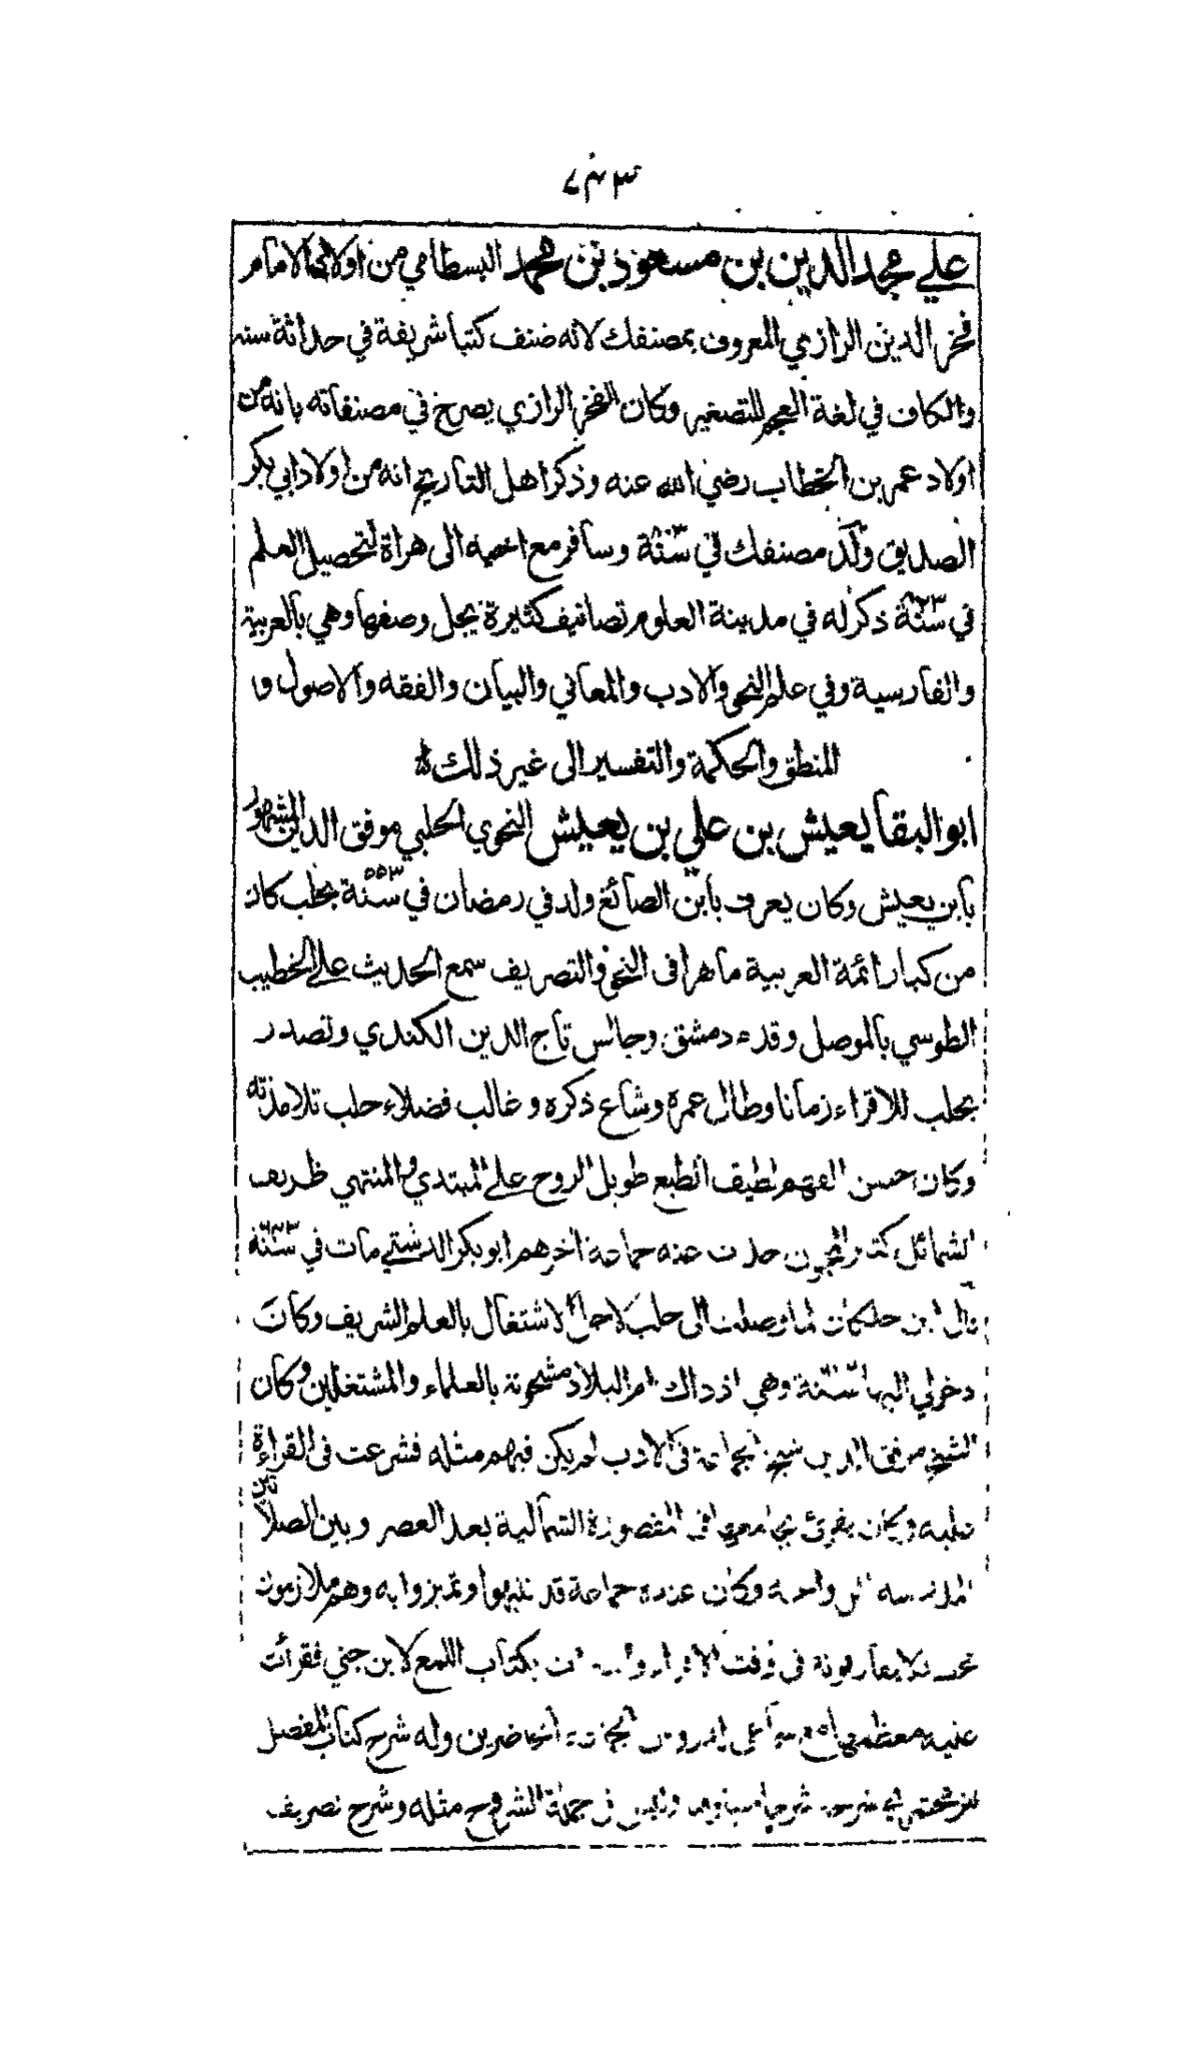 ٧٤٣
علي مجد الدين بن مسعود بن محمد البسطامي من اولاد الامام
فخر الدين الرازي المعروف بمصنفك لانه صنف كتبا شريفة في حداثة سنه
والكاف في لغة العجم للتصغير وكان الفخر الرازي يصرح في مصنفاته بانه من
اولاد عمر بن الخطاب رضي الله عنه وذكر اهل التاريخ انه من اولاد ابي بكر
الصديق ولد مصنفك في سنة ٨٠٣ وسافر مع اخيه الى هراة لتحصيل العلم
في سنة ٨٢٣ ذكر له في مدينة العلوم تصانيف كثيرة يجل وصفها وهي بالعربية
والفارسية وفي علم النحو والادب والمعاني والبيان والفقه والاصول وا
المنطق والحكمة والتفسير الى غير ذلك
ابو البقا يعيش بن علي بن يعيش النحوي الحلبي موفق الدين المشهور
بابن يعيش وكان يعرف بابن الصائغ ولد في رمضان في سنة ٥٥٣ بحلب كان
من كبار ائمة العربية ماهرا في النحو والتصريف سمع الحديث على الخطيب
الطوسي بالموصل وقدم دمشق وجالس تاج الدين الكندي وتصدر
بحلب للاقراء زمانا وطال عمره وشاع ذكره وغالب فضلاء حلب تلامذته
وكان حسن الفهم لطيف الطبع طويل الروح على المبتدي والمنتهي ظريف
الشمائل كثير المجون حدث عنه جماعة اخرهم ابو بكر الدشتي مات في سنة ٦٤٣
قال ابن خلكان لما وصلت الى حلب لاجل الاشتغال بالعلم الشريف وكان
دخولي اليها سنة وهي اذ ذاك ام البلاد مشحونة بالعلماء والمشتغلين وكان
الشيخ موفق الدين شيخ الجماعة في الادب لم يكن فيهم مثله فشرعت في القراءة
عليه وكان يقرئ بجامعها في المقصورة الشمالية بعد العصر وبين الصلاتين
وكان عنده جماعة قد تنبهوا وتميزوا به وهم ملازمون
لا يفارقونه في وقت الاقراء بكتاب اللمع لابن جني فقرأت
عليه معظمها الحاضرين وله شرح كتاب المفصل
للزمخشري شرحه وليس في جملة الشروح مثله وشرح تصريف